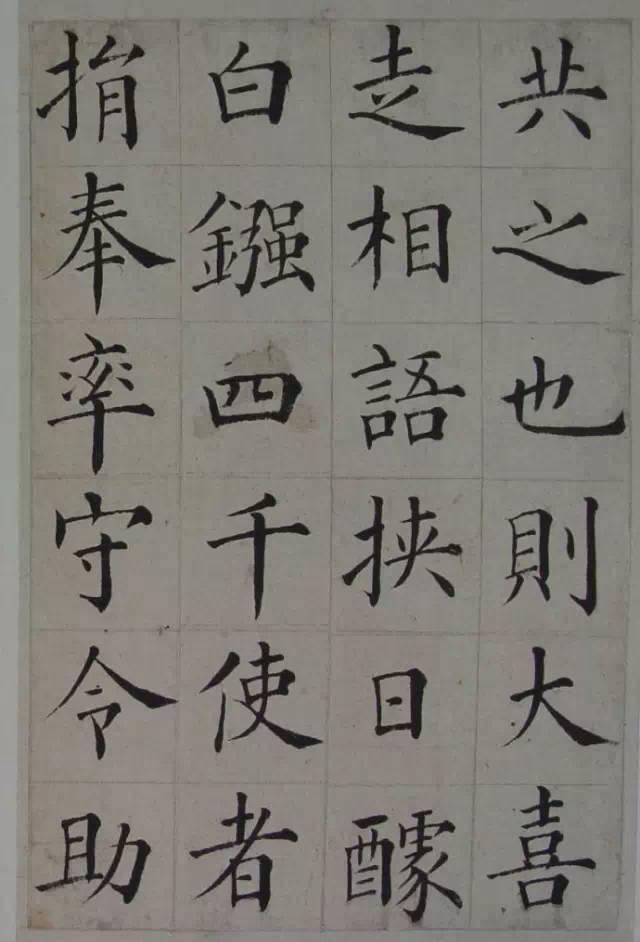 共之也則大喜
走相語挟日醵
白鏹四千使者
捐奉率守令助